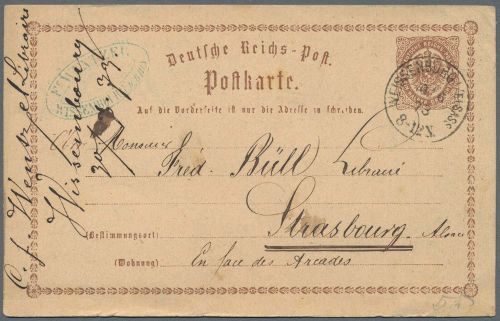 Deutsche Reichs-Post.
Postkarte.
Auf die Vorderseite ist nur die Adresse zu schreiben.
Monsieur
Fréd. Büll Libraire
Strasbourg. Alsace
(Bestimmungsort)
(Wohnung)
En face des Arcades
WEISSENBURG
8-12 N.
Wentzel Libraire
Wissembourg